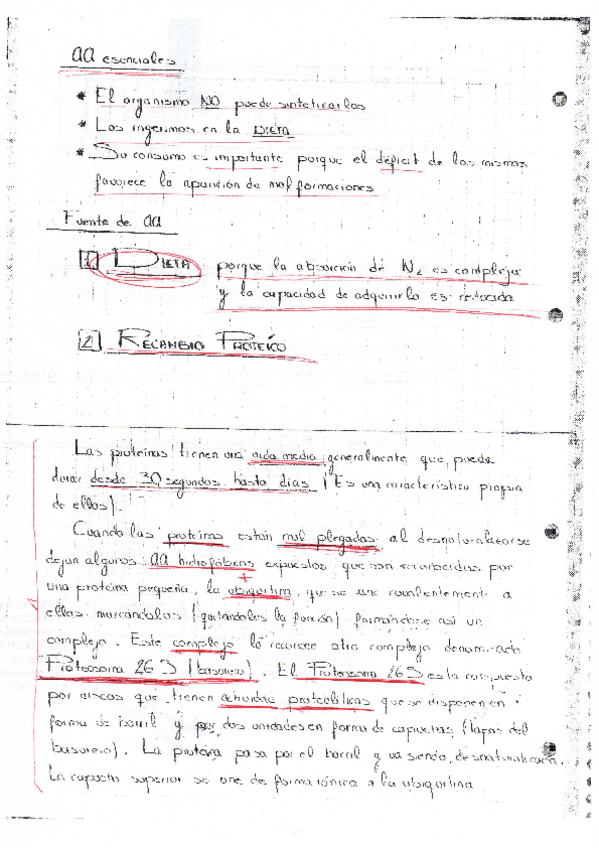 aa esenciales
* El organismo NO puede sintetizarlos
* Los ingerimos en la DIETA
* Su consumo es importante porque el déficit de los mismos
favorece la aparición de malformaciones
Fuente de aa
1 DIETA porque la absorción de N2 es compleja
y la capacidad de adquirirla es reducida
2 RECAMBIO PROTEÍCO
Las proteínas tienen una vida media generalmente que puede
durar desde 30 segundos hasta días (Es una característica propia
de ellas).
Cuando las proteínas están mal plegadas al desnaturalizarse
dejan algunos aa hidrofóbicos expuestos que son reconocidos por
+
una proteína pequeña, la ubiquitina, que se une covalentemente a
ellas marcándolas (quitándoles la función) formándose así un
complejo. Este complejo lo reconoce otro complejo denominado
Proteosoma 26S (basurero). El Proteosoma 26S esta compuesto
por discos que tienen actividad proteolíticas que se disponen en
forma de barril y por dos unidades en forma de caperuzas (tapas del
basurero). La proteína pasa por el barril y va siendo desnaturalizada.
La caperuza superior se une de forma iónica a la ubiquitina